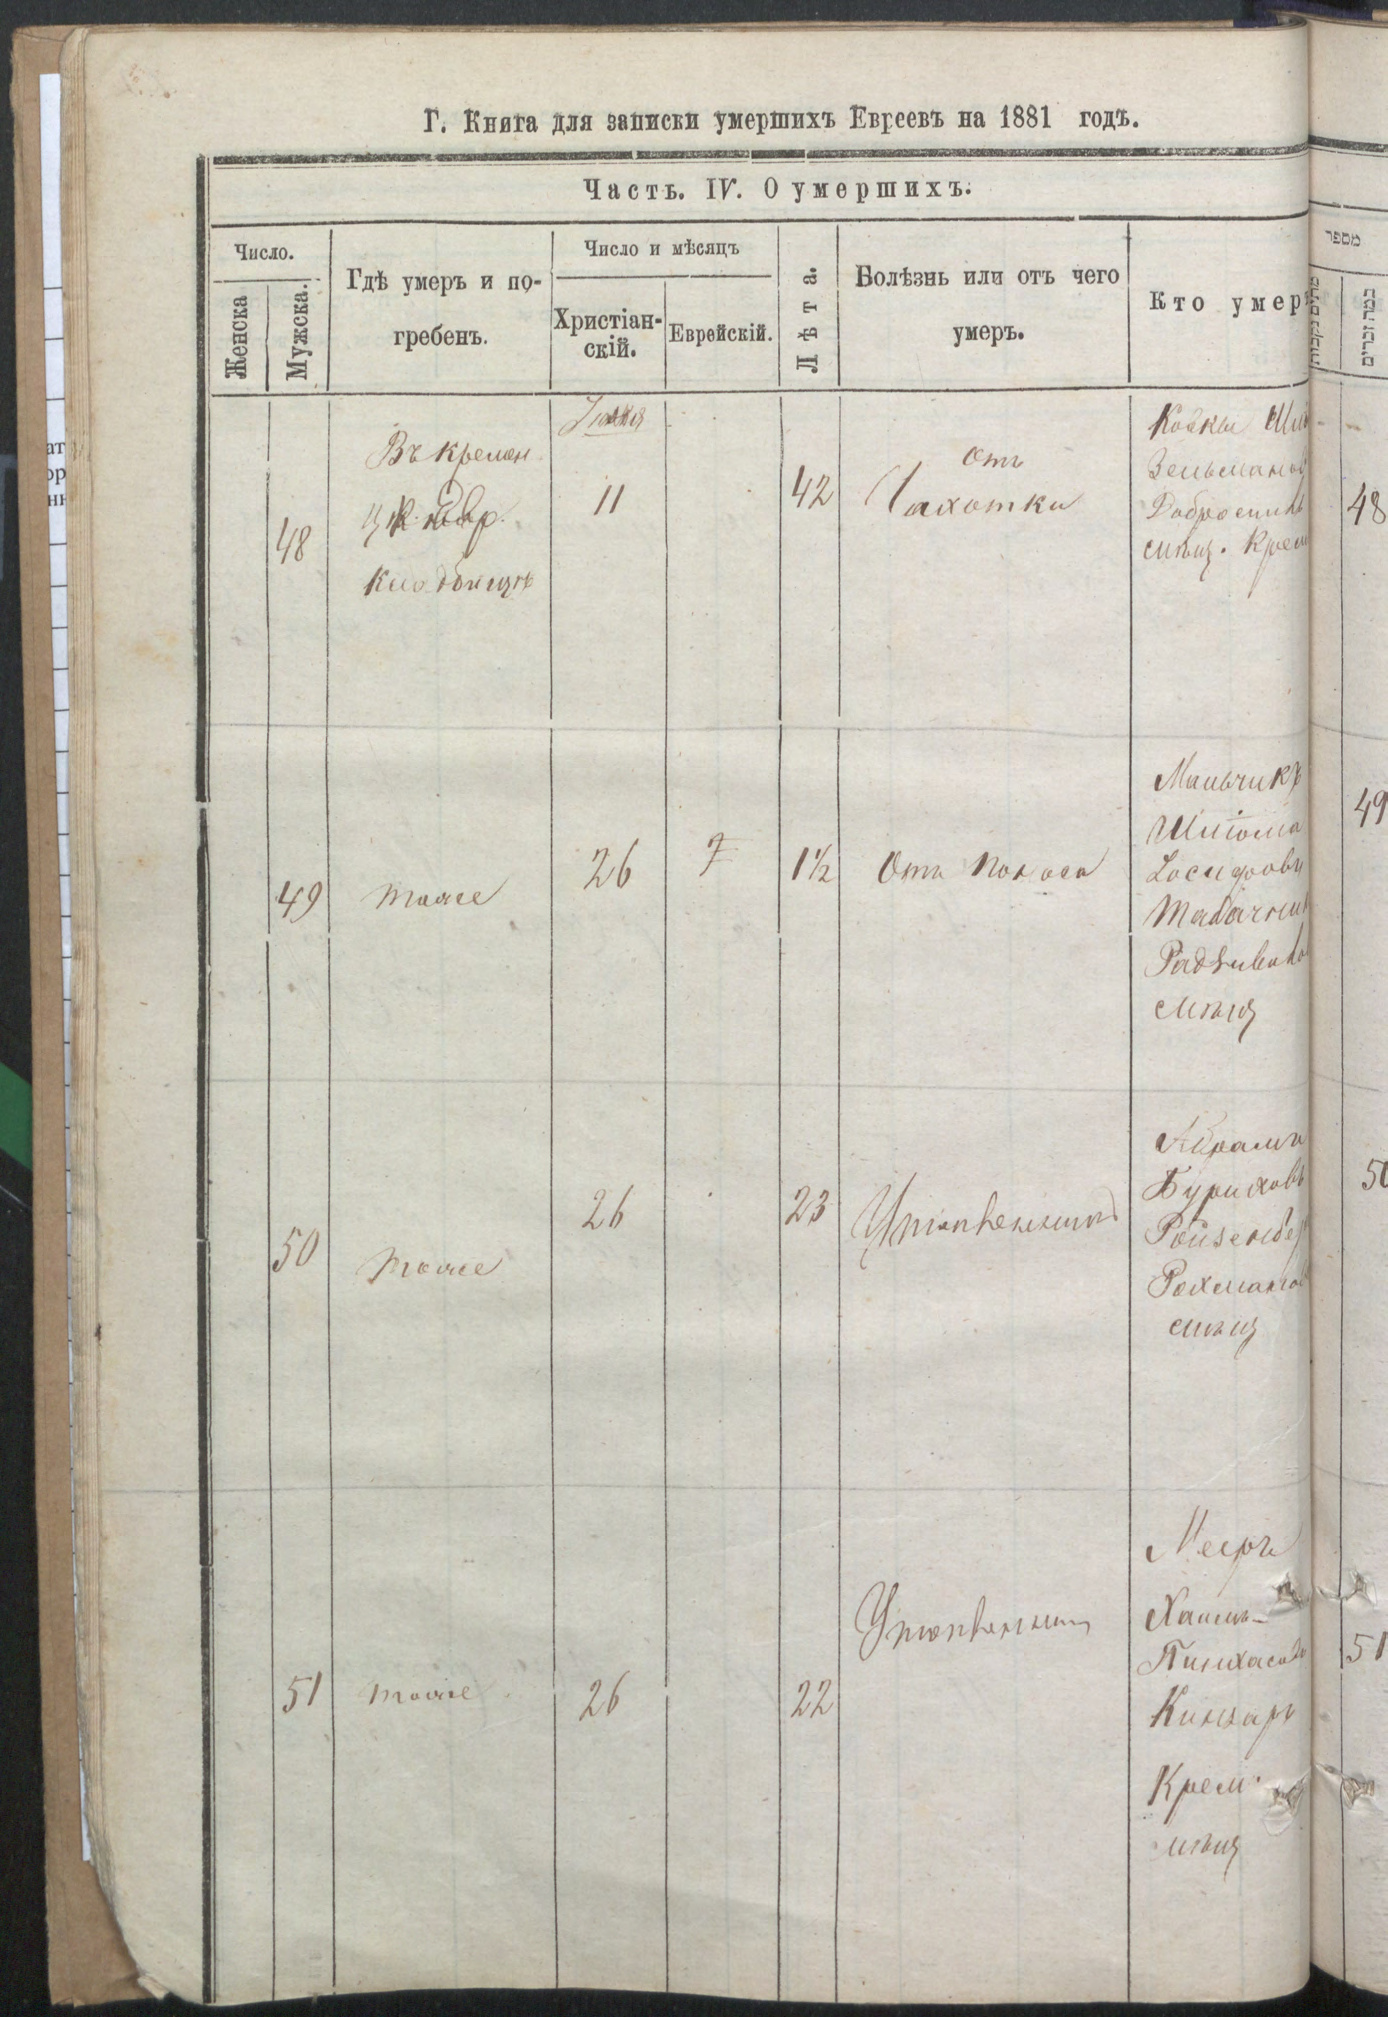 Г. Книга для записки умершихъ Евреевъ на 1881 годъ.
Часть. IV. О умершихъ.
Число.
Женска
Мужска.
Гдѣ умеръ и по-
гребенъ.
Число и мѣсяцъ
Христіан-
скій.
Еврейскій.
Лѣта.
Болѣзнь или отъ чего
умеръ.
Кто умер
מספר
48
Въ кремен.
Евр.
кладбищѣ
11
42
отъ
Чахотки
Зельманов
мѣщ. Крем
48
49
тоже
26
7
1½
отъ поноса
Мальчикъ
Шлиома
Иосифови
Радзивило
мѣщ
49
50
тоже
26
23
Утопленникъ
Абрамъ
Бруховъ
Ройзенбер
Рохманов
мѣщ
50
51
тоже
26
22
Утопленникъ
Мееръ
Хаимъ-
Пинхасовъ
Крем.
мѣщ
51